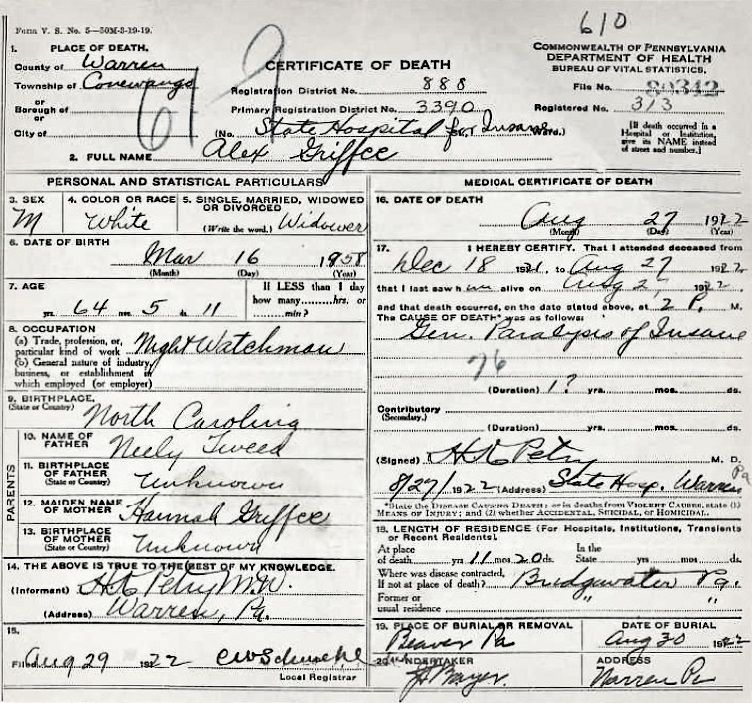 Form V. S. No. 5—50M-3-19-19.
610
1. PLACE OF DEATH.
County of Warren
Township of Conewango
or
Borough of
or
City of
CERTIFICATE OF DEATH
Registration District No. 888
Primary Registration District No. 3390
(No. State Hospital for Insane Ward.)
COMMONWEALTH OF PENNSYLVANIA
DEPARTMENT OF HEALTH
BUREAU OF VITAL STATISTICS.
File No. 80342
Registered No. 313
[If death occurred in a
Hospital or Institution,
give its NAME instead
of street and number.]
2. FULL NAME Alex Griffee
PERSONAL AND STATISTICAL PARTICULARS
3. SEX
M
4. COLOR OR RACE
White
5. SINGLE, MARRIED, WIDOWED
OR DIVORCED
(Write the word.) Widower
6. DATE OF BIRTH
Mar 16 1958
(Month) (Day) (Year)
7. AGE
64 yrs. 5 mos. 11 ds.
If LESS than 1 day
how many........hrs. or
........min?
8. OCCUPATION
(a) Trade, profession, or,
particular kind of work Night Watchman
(b) General nature of industry,
business, or establishment in
which employed (or employer)
9. BIRTHPLACE.
(State or Country) North Carolina
PARENTS
10. NAME OF
FATHER Neely Tweed
11. BIRTHPLACE
OF FATHER
(State or Country) Unknown
12. MAIDEN NAME
OF MOTHER Hannah Griffee
13. BIRTHPLACE
OF MOTHER
(State or Country) Unknown
14. THE ABOVE IS TRUE TO THE BEST OF MY KNOWLEDGE.
(Informant) H K Petry M.D.
(Address) Warren, Pa.
15.
Filed Aug 29 1922
Local Registrar
MEDICAL CERTIFICATE OF DEATH
16. DATE OF DEATH
Aug 27 1922
(Month) (Day) (Year)
17. I HEREBY CERTIFY, That I attended deceased from
Dec 18 1921, to Aug 27 1922
that I last saw him alive on Aug 27 1922.
and that death occurred, on the date stated above, at 2 P. M.
The CAUSE OF DEATH* was as follows:
Gen. Paralysis of Insane
76
(Duration) 1? yrs. mos. ds.
Contributory
(Secondary.)
(Duration) yrs. mos. ds.
(Signed) H K Petry M. D.
8/27/1922 (Address) State Hosp. Warren Pa
*State the DISEASE CAUSING DEATH; or in deaths from VIOLENT CAUSES, state (1)
MEANS OF INJURY; and (2) whether ACCIDENTAL, SUICIDAL, or HOMICIDAL.
18. LENGTH OF RESIDENCE (For Hospitals, Institutions, Transients
or Recent Residents).
At place
of death yrs. 11 mos. 20 ds.
In the
State yrs. mos. ds.
Where was disease contracted,
if not at place of death? Bridgwater Pa.
Former or
usual residence " "
19. PLACE OF BURIAL OR REMOVAL
Beaver Pa
DATE OF BURIAL
Aug 30 1922
20. UNDERTAKER
ADDRESS
Warren Pa